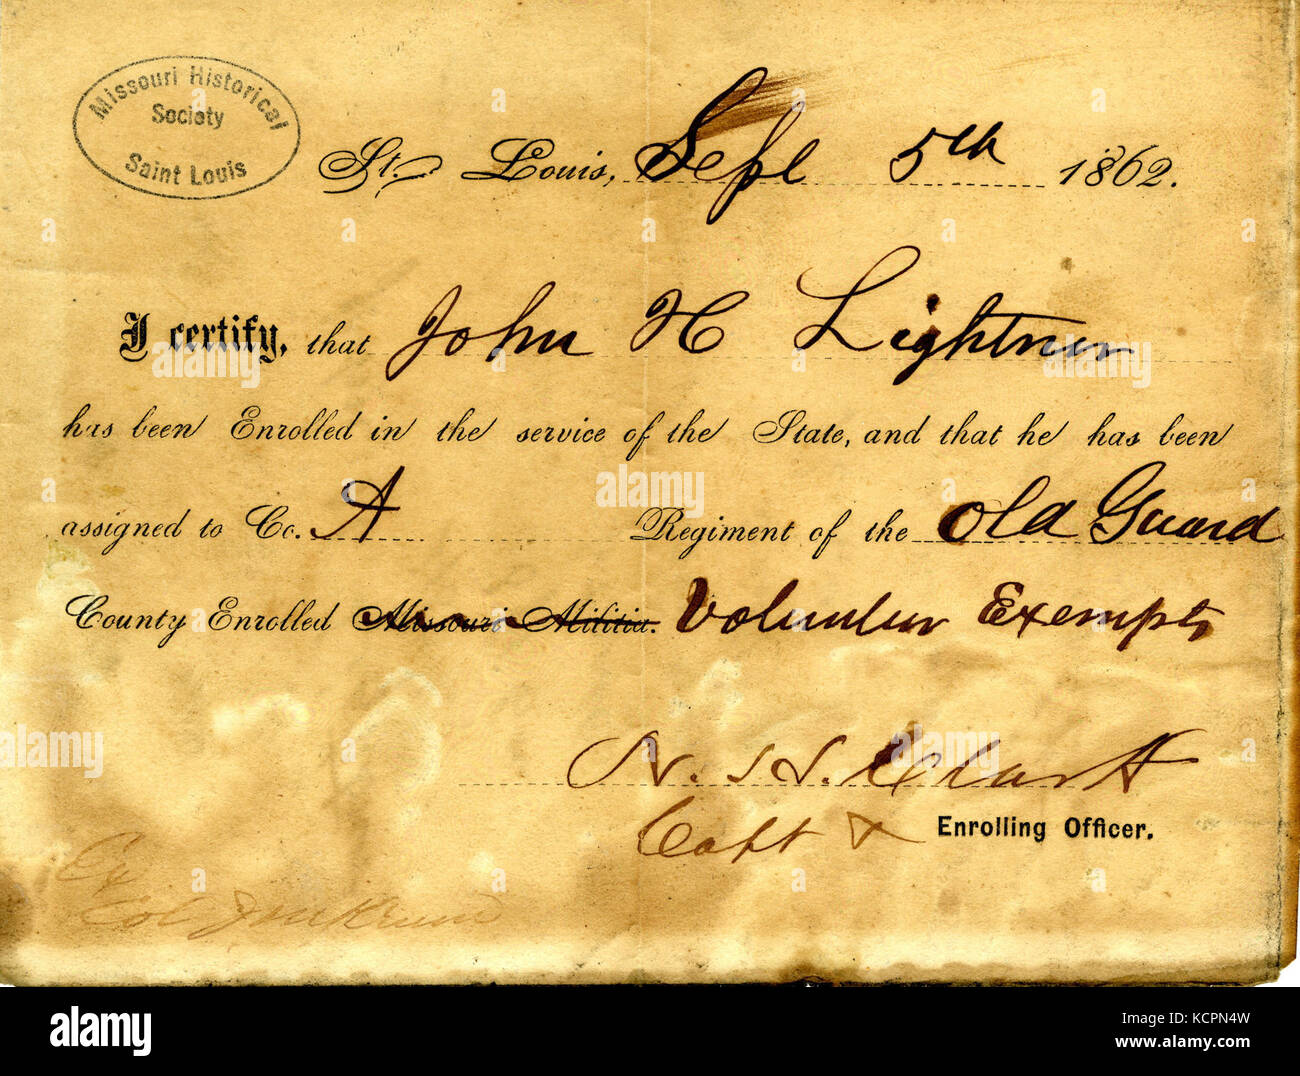 Missouri Historical
Society
Saint Louis
St. Louis, Sept 5th 1862.
I certify, that John H Lightner
has been Enrolled in the service of the State, and that he has been
assigned to Co. A Regiment of the Old Guard
County Enrolled Missouri Militia. Volunteer Exempts
Clark
Capt & Enrolling Officer.
Col
alamy
Image ID: KCPN4W
www.alamy.com